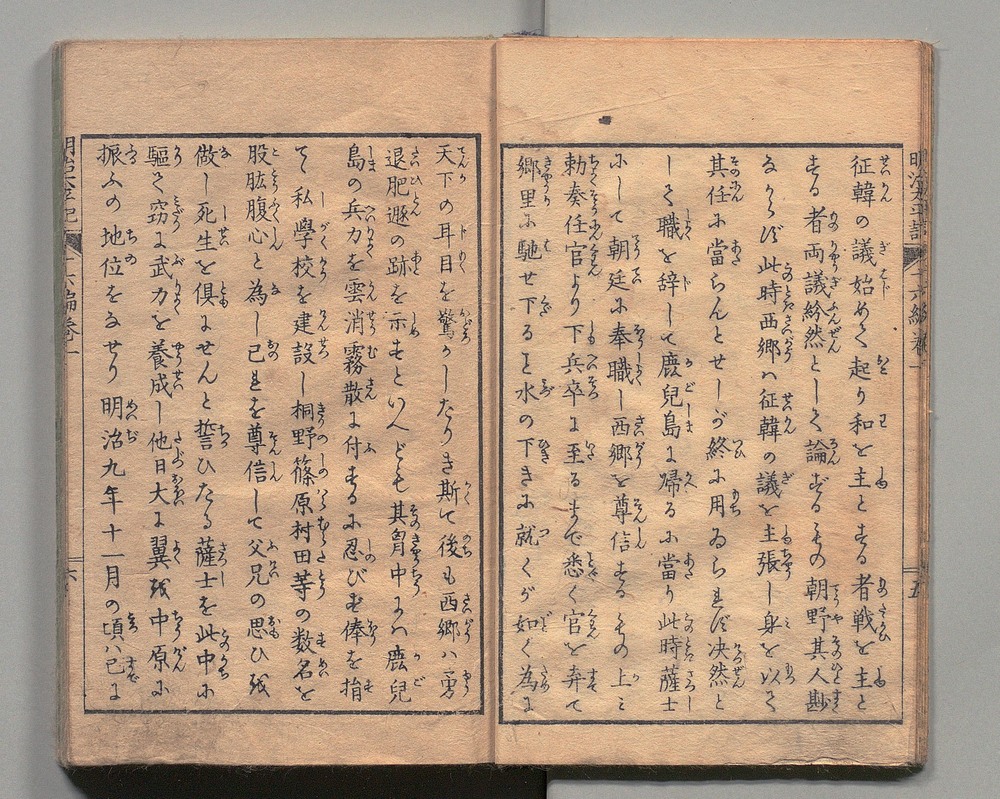 明治太平記 十六編巻一 五
征韓の議始めて起り和を主とする者戦を主と
する者両議紛然として論ずるもの朝野其人尠
なからず此時西郷ハ征韓の議を主張し身を以て
其任に當らんとせしが終に用ゐられず决然と
して職を辞して鹿兒島に帰るに當り此時薩士
にして朝廷に奉職し西郷を尊信するもの上ミ
勅奏任官より下兵卒に至るまで悉く官を弃て
郷里に馳せ下ること水の下きに就くが如く為に
天下の耳目を驚かしたりき斯て後も西郷ハ勇
退肥遯の跡を示すといへども其胷中にハ鹿兒
島の兵力を雲消霧散に付するに忍びず俸を損
て私學校を建設し桐野篠原村田等の数名を
股肱腹心と為し己れを尊信して父兄の思ひを
做し死生を倶にせんと誓ひたる薩士を此中に
驅て窃に武力を養成し他日大に翼を中原に
振ふの地位をなせり明治九年十一月の頃ハ已に
明治太平記 十六編巻一 六